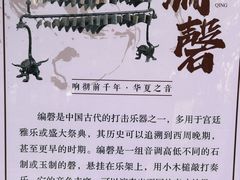 编磬
QING
响彻前千年·华夏之音
编磬是中国古代的打击乐器之一，多用于宫廷
雅乐或盛大祭典，其历史可以追溯到西周晚期，
甚至更早的时期。编磬是一组音调高低不同的石
制或玉制的磬，悬挂在乐架上，用小木槌敲打奏